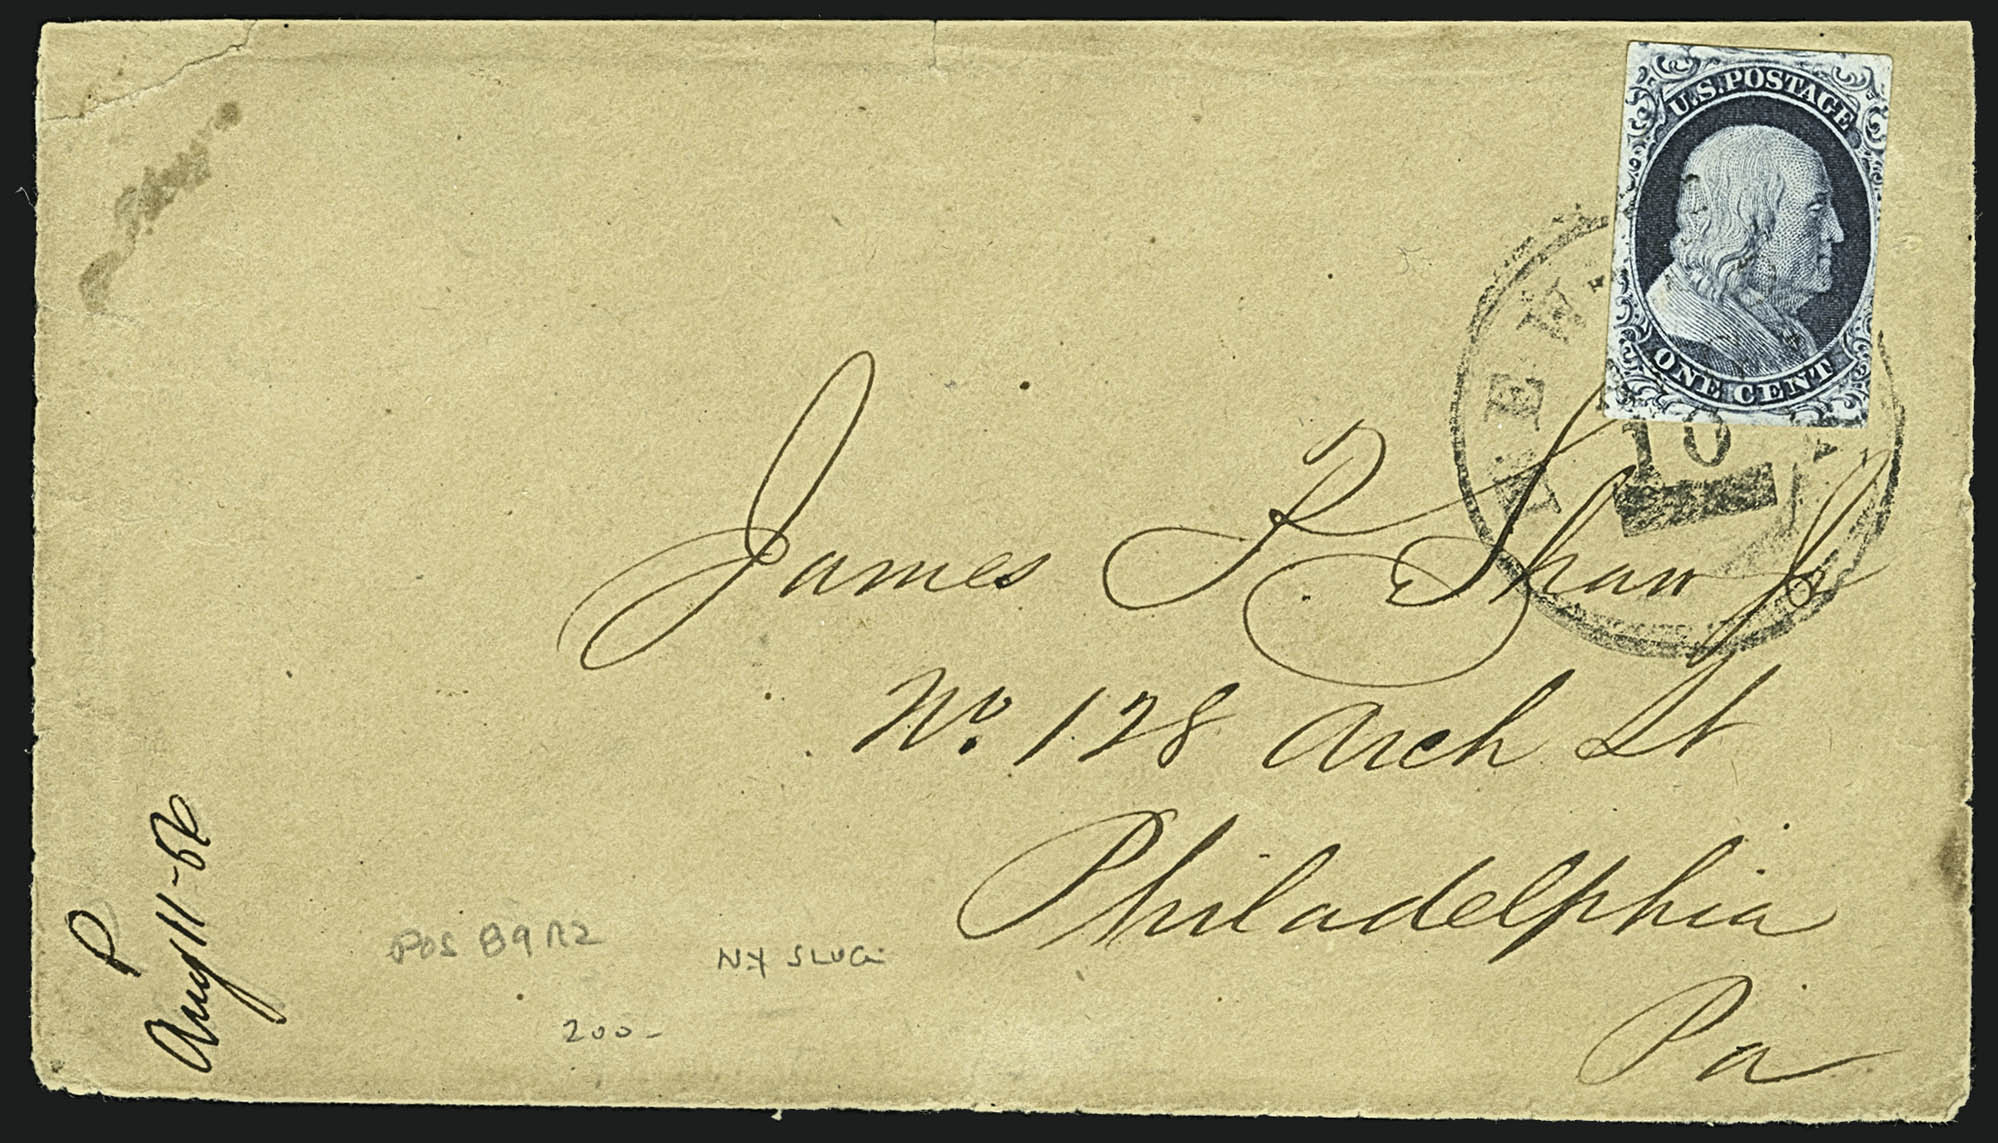 U.S. POSTAGE
ONE CENT
NEW
10
James T. Shaw Jr
No. 128 Arch St
Philadelphia
Pa
P
Aug 11-56
POS 89R2
NY SLUG
200-